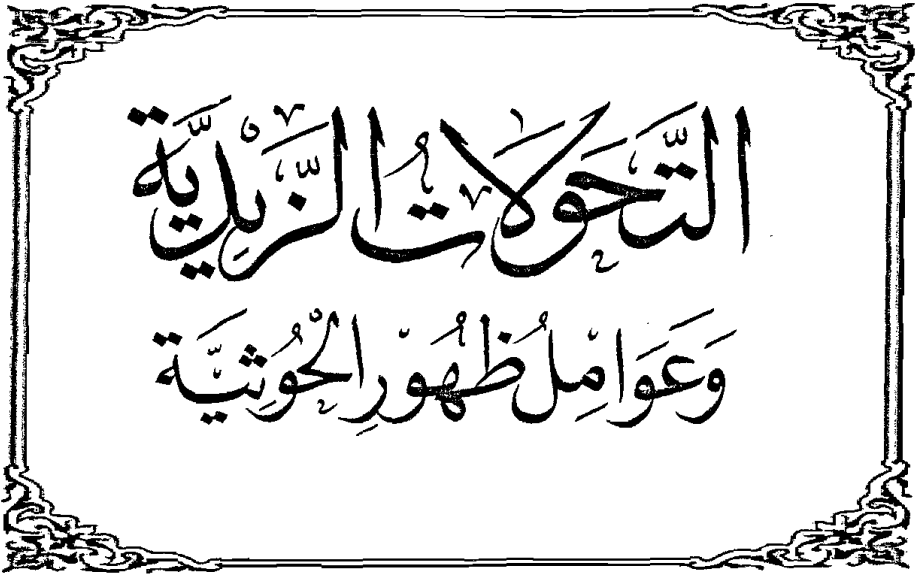 التَّحَوُّلَاتُ الزَّيْدِيَّة
وَعَوَامِلُ ظُهُوْرِ الْحُوْثِيَّة